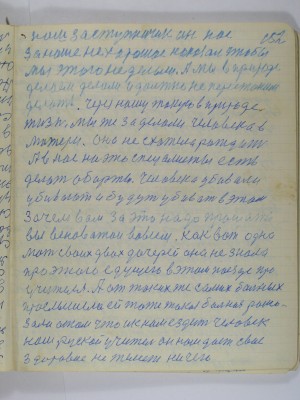 наш заступник он нас 152
за наше нехорошее наказал чтобы
мы этого не делали. А мы в природе
делали делаем и долго не перестанем
делать. Через нашу такую в природе
жизнь, мы же заделали человека в
матери. Она не схотела рождать
А в нас на это специалисты есть
делать аборты. Человека убивали
убивают и будут убивать в этом
Зачем вам за это надо
вы виноваты во всем. Как вот одна
мать своих двух дочерей она не знала
про этого с душою в этом поезде про
учителя. А от таких же самых больных
прослышала ей тоже такая больная расска-
зала о том что и к нам ездит человек
наш русской учитель он нам дает свое
здоровье не жалеет ничего.